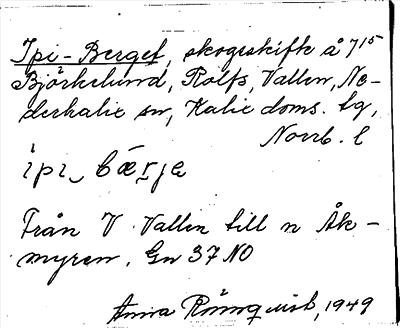 Ipi-Berget, skogsskifte å 7¹⁵
Björkelund, Rolfs, Vallen, Ne-
derkalix sn, Kalix doms. tg,
Norrb. l
ipi bærje
Från V Vallen till n Åk-
myren. Gn 37 NO
Anna Rönnquist, 1949